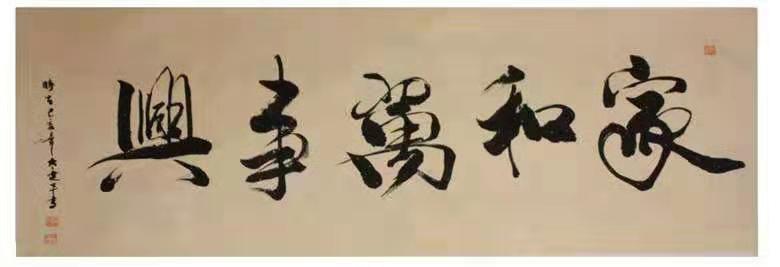 家和萬事興
時在己亥年